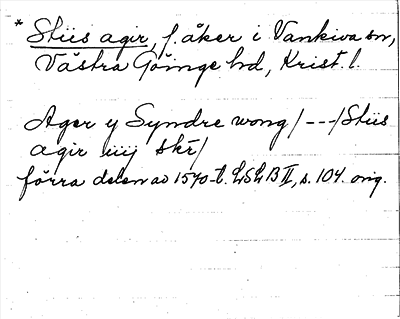 * Stiis agir, f. åker i Vankiva sn,
Västra Göinge hd, Krist. l.
Ager y Syndre wong /---/ Stiis
agir iiij skr/
förra delen av 1570-t. LSLB II, s. 104. orig.